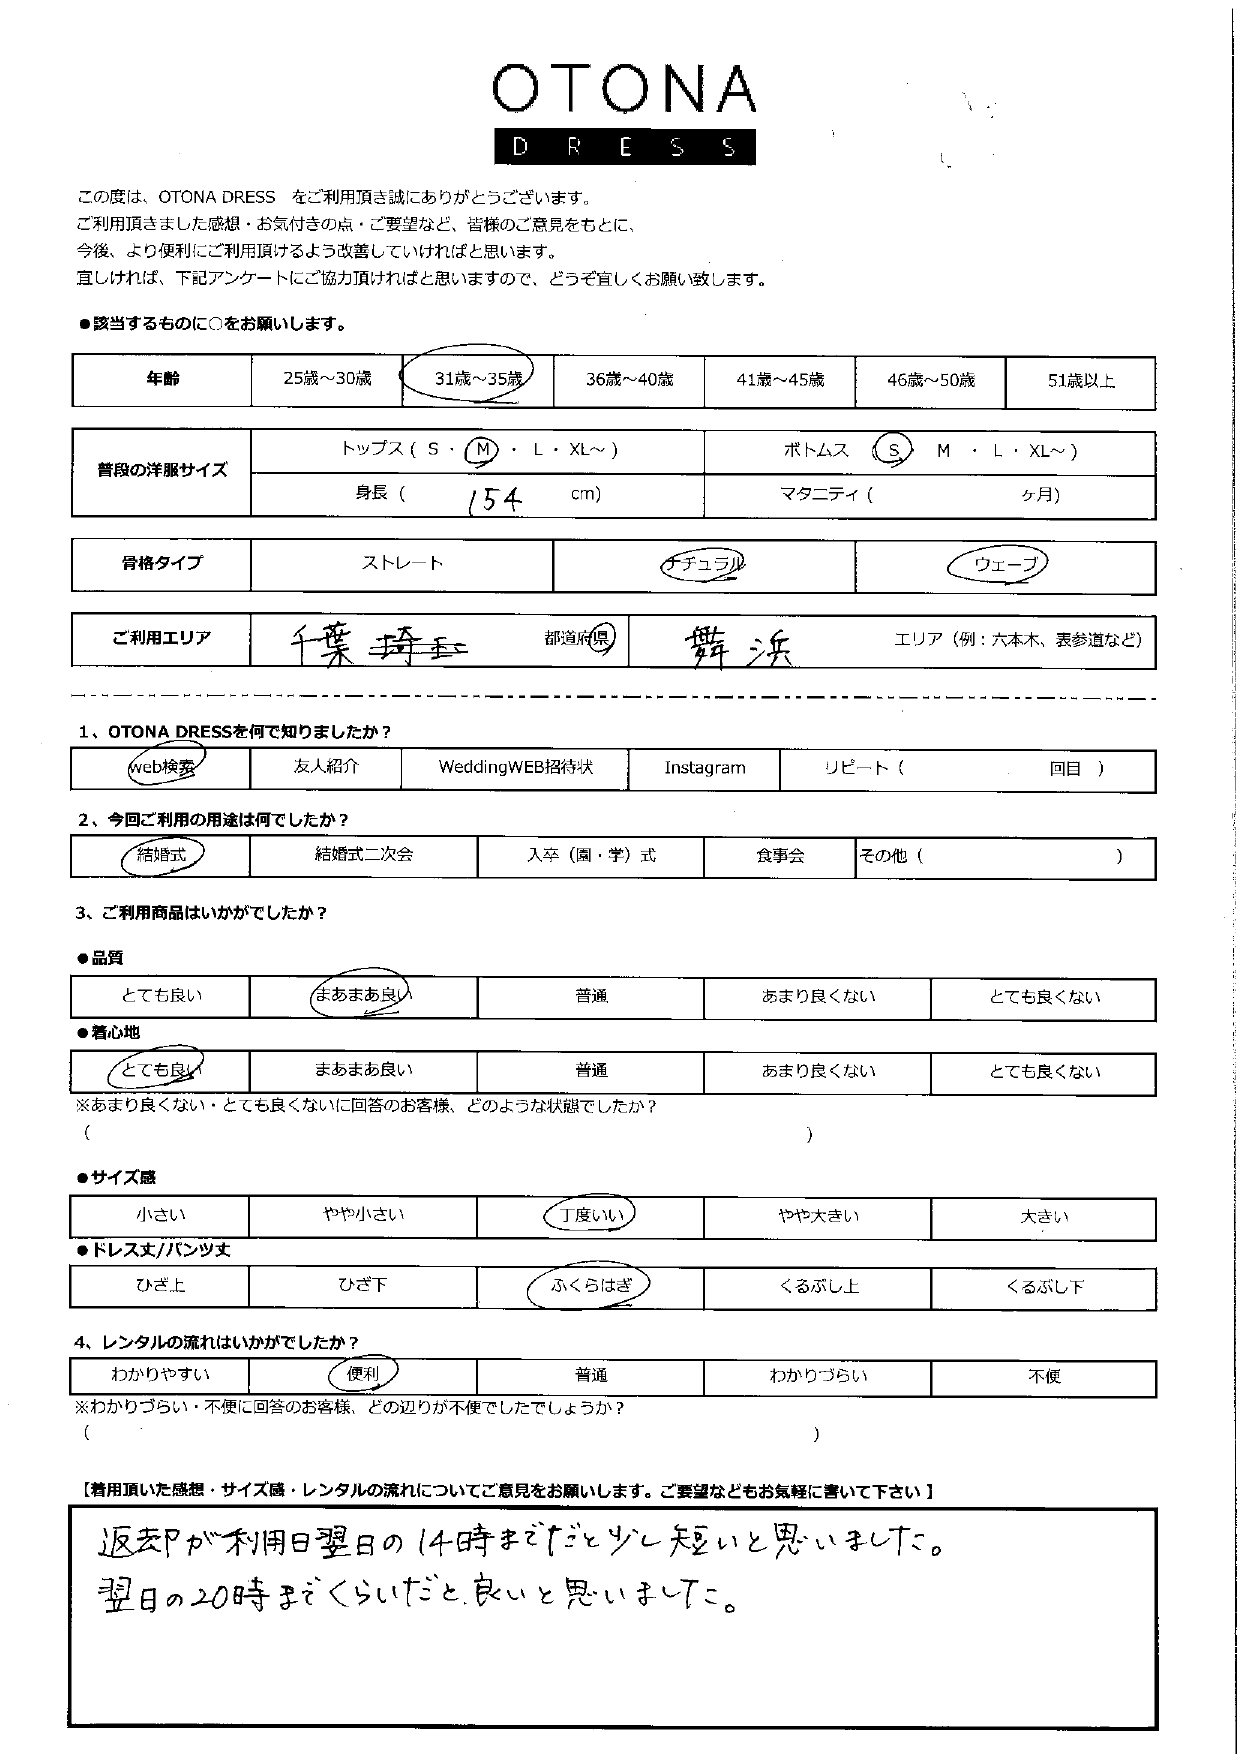 OTONA
DRESS
この度は、OTONA DRESS　をご利用頂き誠にありがとうございます。
ご利用頂きました感想・お気付きの点・ご要望など、皆様のご意見をもとに、
今後、より便利にご利用頂けるよう改善していければと思います。
宜しければ、下記アンケートにご協力頂ければと思いますので、どうぞ宜しくお願い致します。
●該当するものに○をお願いします。
年齢 25歳～30歳 31歳～35歳 36歳～40歳 41歳～45歳 46歳～50歳 51歳以上
普段の洋服サイズ トップス ( S ・ M ・ L ・ XL～ ) ボトムス ( S M ・ L ・ XL～ )
身長 ( 154 cm) マタニティ ( ヶ月)
骨格タイプ ストレート ナチュラル ウェーブ
ご利用エリア 千葉 埼玉 都道府県 舞浜 エリア（例：六本木、表参道など）
1、OTONA DRESSを何で知りましたか？
web検索 友人紹介 WeddingWEB招待状 Instagram リピート ( 回目 )
2、今回ご利用の用途は何でしたか？
結婚式 結婚式二次会 入卒（園・学）式 食事会 その他 ( )
3、ご利用商品はいかがでしたか？
●品質
とても良い まあまあ良い 普通 あまり良くない とても良くない
●着心地
とても良い まあまあ良い 普通 あまり良くない とても良くない
※あまり良くない・とても良くないに回答のお客様、どのような状態でしたか？
( )
●サイズ感
小さい やや小さい 丁度いい やや大きい 大きい
●ドレス丈/パンツ丈
ひざ上 ひざ下 ふくらはぎ くるぶし上 くるぶし下
4、レンタルの流れはいかがでしたか？
わかりやすい 便利 普通 わかりづらい 不便
※わかりづらい・不便に回答のお客様、どの辺りが不便でしたでしょうか？
( )
【着用頂いた感想・サイズ感・レンタルの流れについてご意見をお願いします。ご要望などもお気軽に書いて下さい】
返却が利用日翌日の14時までだと少し短いと思いました。
翌日の20時までくらいだと良いと思いました。